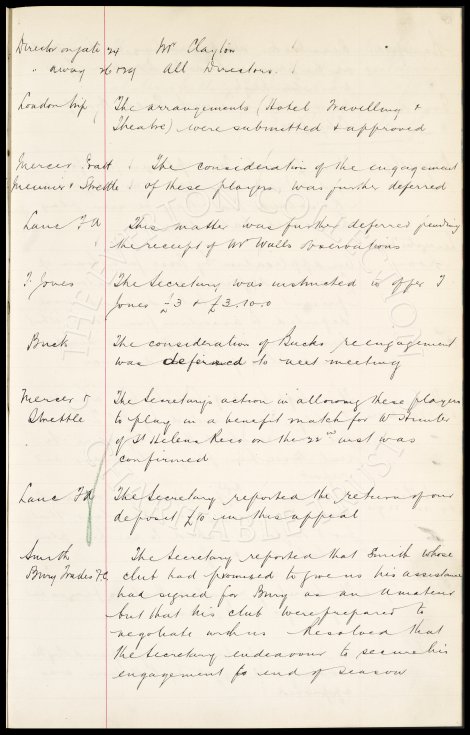 Director on gate 24 Mr Clayton
" away 26 & 29 All Directors.
London trip The arrangements (Hotel Travelling &
Theatre) were submitted & approved
Mercer The consideration of the engagement
Meunier & Strettle of these players was further deferred
Lanc F A This matter was further deferred pending
the receipt of Mr Walls observations
T. Jones The Secretary was instructed to offer T
Jones £3 & £3.10.0
Buck The consideration of Bucks reengagement
was deferred to next meeting
Mercer & The Secretarys action in allowing these players
Strettle to play in a benefit match for W
of St Helens Recs on the 22nd inst was
confirmed
Lanc F A The Secretary reported the return of our
deposit £10 in this appeal
Smith The Secretary reported that Smith whose
Bury Trades F.C. club had promised to give us his assistance
had signed for Bury as an amateur
but that his club were prepared to
negotiate with us Resolved that
the Secretary endeavour to secure his
engagement for end of season
THE EVERTON COLLECTION
CHARITABLE TRUST